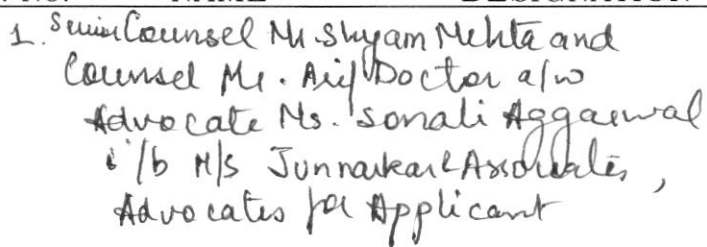 NAME
DESIGNATION
1. Senior Counsel Mr. Shyam Mehta and
Counsel Mr. Arif Doctor a/w
Advocate Ms. Sonali Aggarwal
i/b M/s Junnarkar & Associates,
Advocates for Applicant